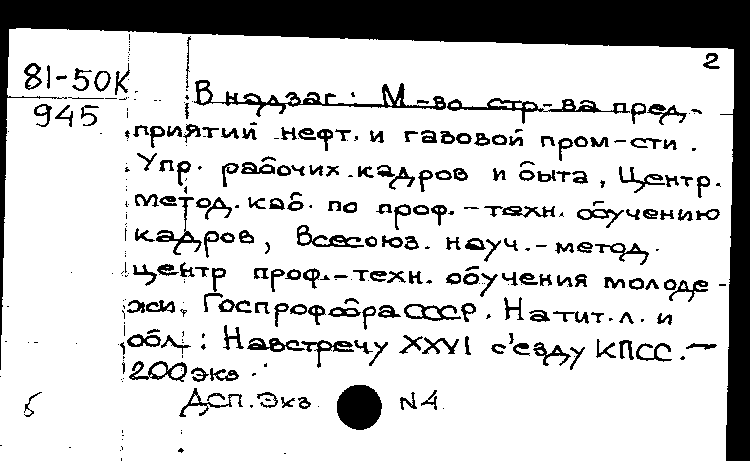 2
81-50К
945
В надзаг.: М-во стр-ва пред-
приятий нефт. и газовой пром-сти.
Упр. рабочих кадров и быта, Центр.
метод. каб. по проф.-техн. обучению
кадров, Всесоюз. науч.-метод.
центр проф.-техн. обучения молоде-
жи Госпрофобра СССР. На тит. л. и
обл.: Навстречу XXVI с'езду КПСС. —
200 экз.
б Дсп. Экз. N4